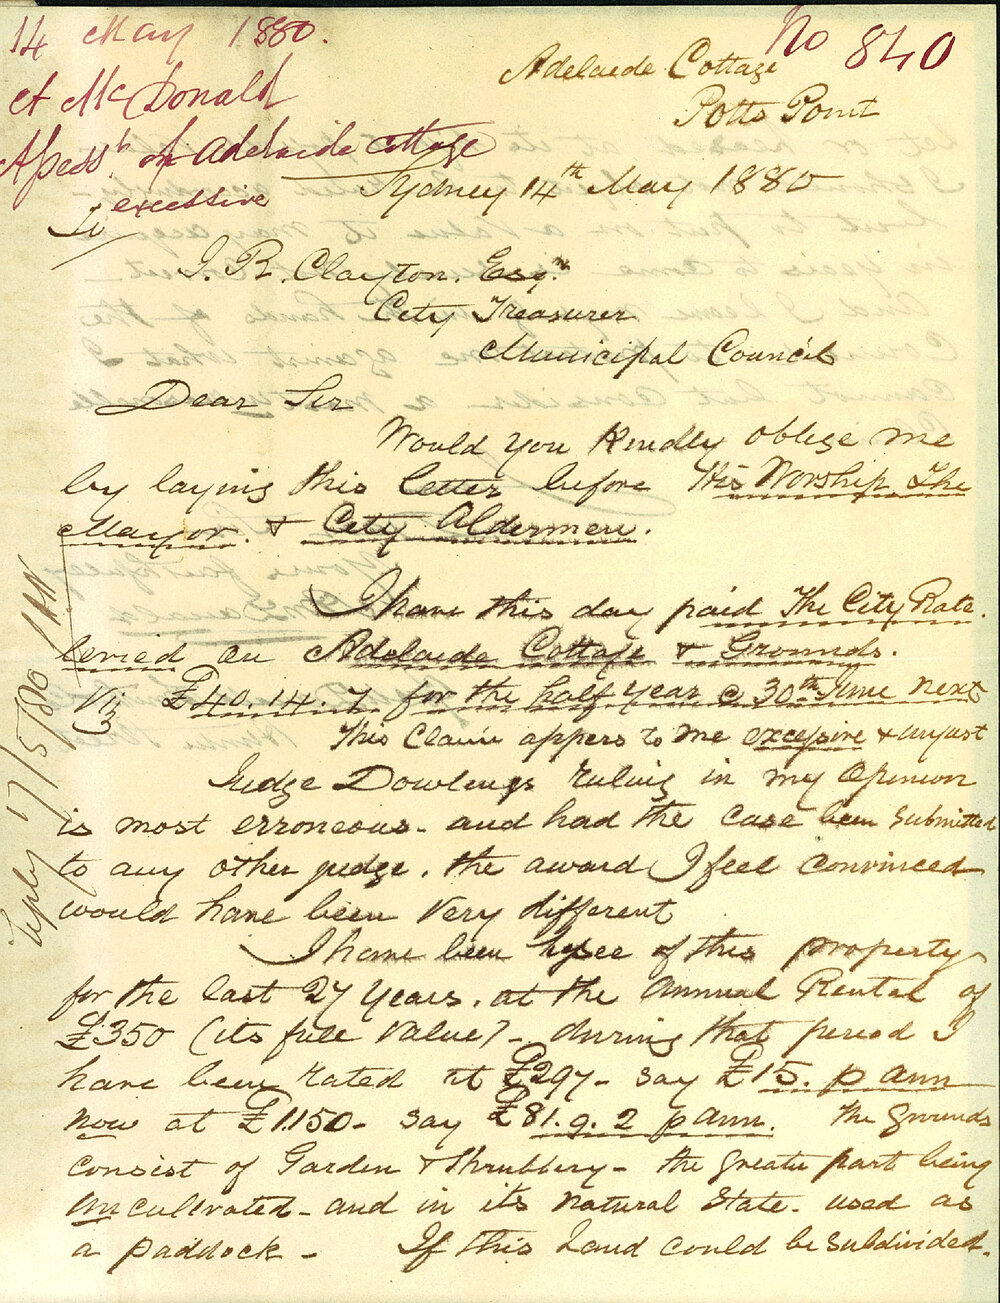 14 May 1880.
No 840
A McDonald
Assesst of Adelaide Cottage
excessive
Adelaide Cottage
Potts Point
Sydney 14th May 1880
To
J. R. Clayton. Esqr
City Treasurer
Municipal Council
Dear Sir
Would you Kindly oblige me
by laying this letter before His Worship The
Mayor. & City Aldermen.
I have this day paid The City Rate.
levied on Adelaide Cottage & Grounds.
Viz £40.14.7 for the half year @ 30th June next
This Claim appers to me excessive & unjust
Judge Dowlings ruling in my Opinion
is most erroneous - and had the Case been Submitted
to any other judge. the award I feel convinced
would have been Very different
I have been lysee of this property
for the last 27 Years. at the Annual Rental of
£350 (its full Value) - during that period I
have been rated at £297 - say £15. p ann
now at £1150 - say £81.9.2 p ann. The Grounds
Consist of Garden & Shrubbery - the greater part being
uncultivated - and in its Natural State - used as
a paddock - If this Land could be Subdivided.
reply 17/5/80